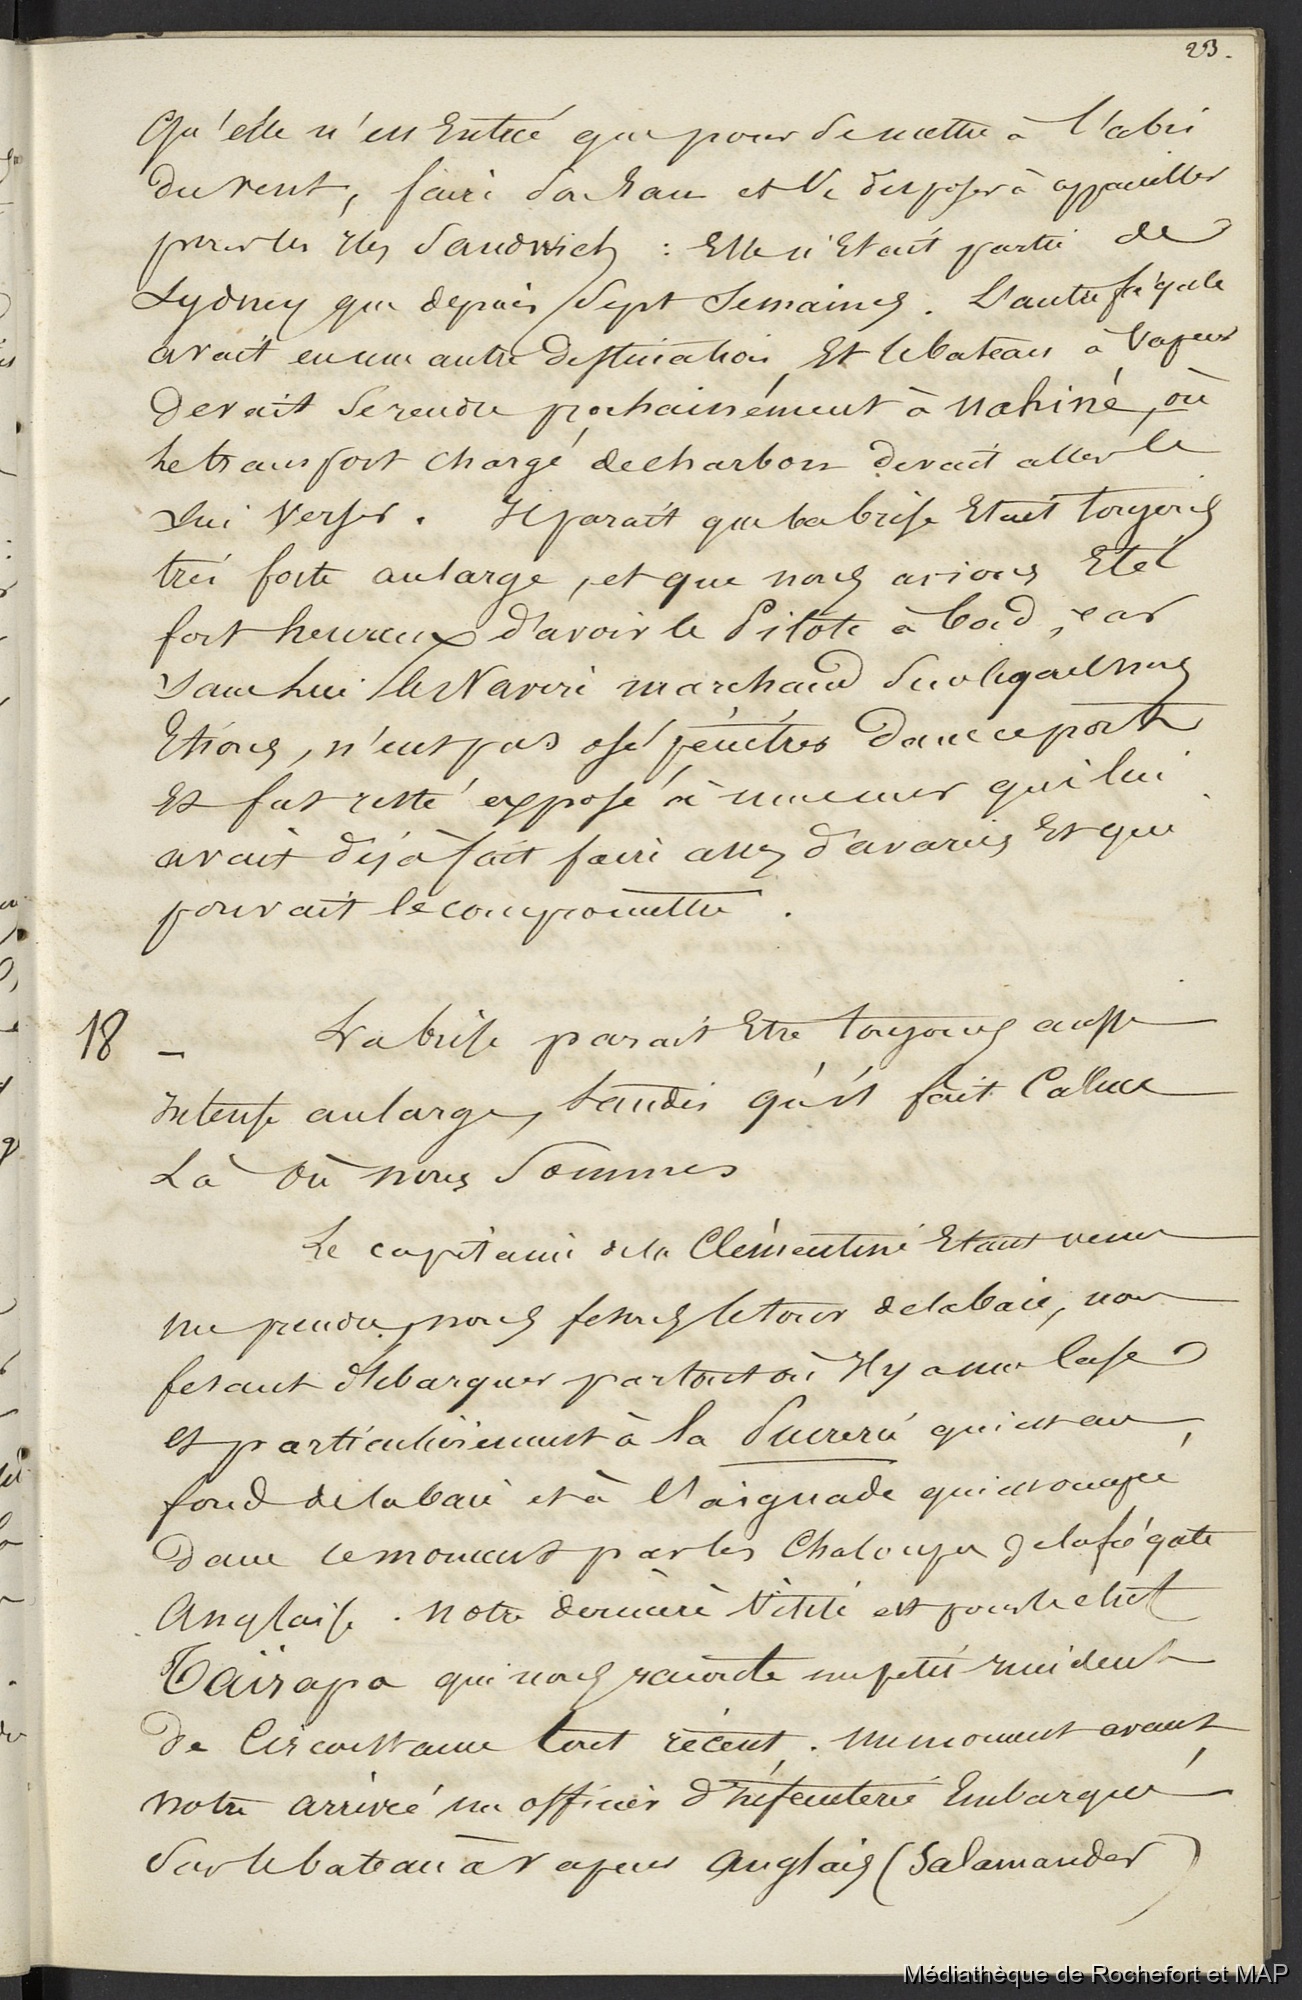 23.
Qu'elle n'est Entrée que pour se mettre à l'abri
du vent, faire son Eau et se disposer à appareiller
pour les Iles Sandwich : Elle n'Etait partie de
Sydney que depuis Sept Semaines. L'autre frégate
avait eu une autre destination, Et le bateau à vapeur
devait se rendre prochainement à Nahiné, où
le transport chargé de charbon devait aller le
lui verser. Il parait que la brise Etait toujours
très forte au large, et que nous avions Eté
fort heureux d'avoir le Pilote à bord, car
sans lui le Navire marchand sur lequel nous
Etions, n'eut pas osé pénétrer dans ce port
Et fut resté exposé à une mer qui lui
avait déjà fait faire assez d'avaries Et qui
pouvait le compromettre.
18 – La brise parait Etre toujours aussi
Intense au large, tandis qu'il fait Calme
Là Où nous Sommes
Le capitaine de la Clémentine Etant venu
me prendre, nous fesons le tour de la baie, nous
fesant débarquer partout où Il y a une Case
et particulièrement à la Sucrerie qui est au
fond de la baie et à l'aiguade qui est occupée
dans ce moment par les Chaloupes de la frégate
Anglaise. Notre dernière visite est pour le chef
Taïrapa qui nous raconte un petit incident
de Circonstance tout récent. Un moment avant
notre arrivée un officier d'Infanterie Embarqué
Sur le bateau à vapeur Anglais (Salamander)
Médiathèque de Rochefort et MAP